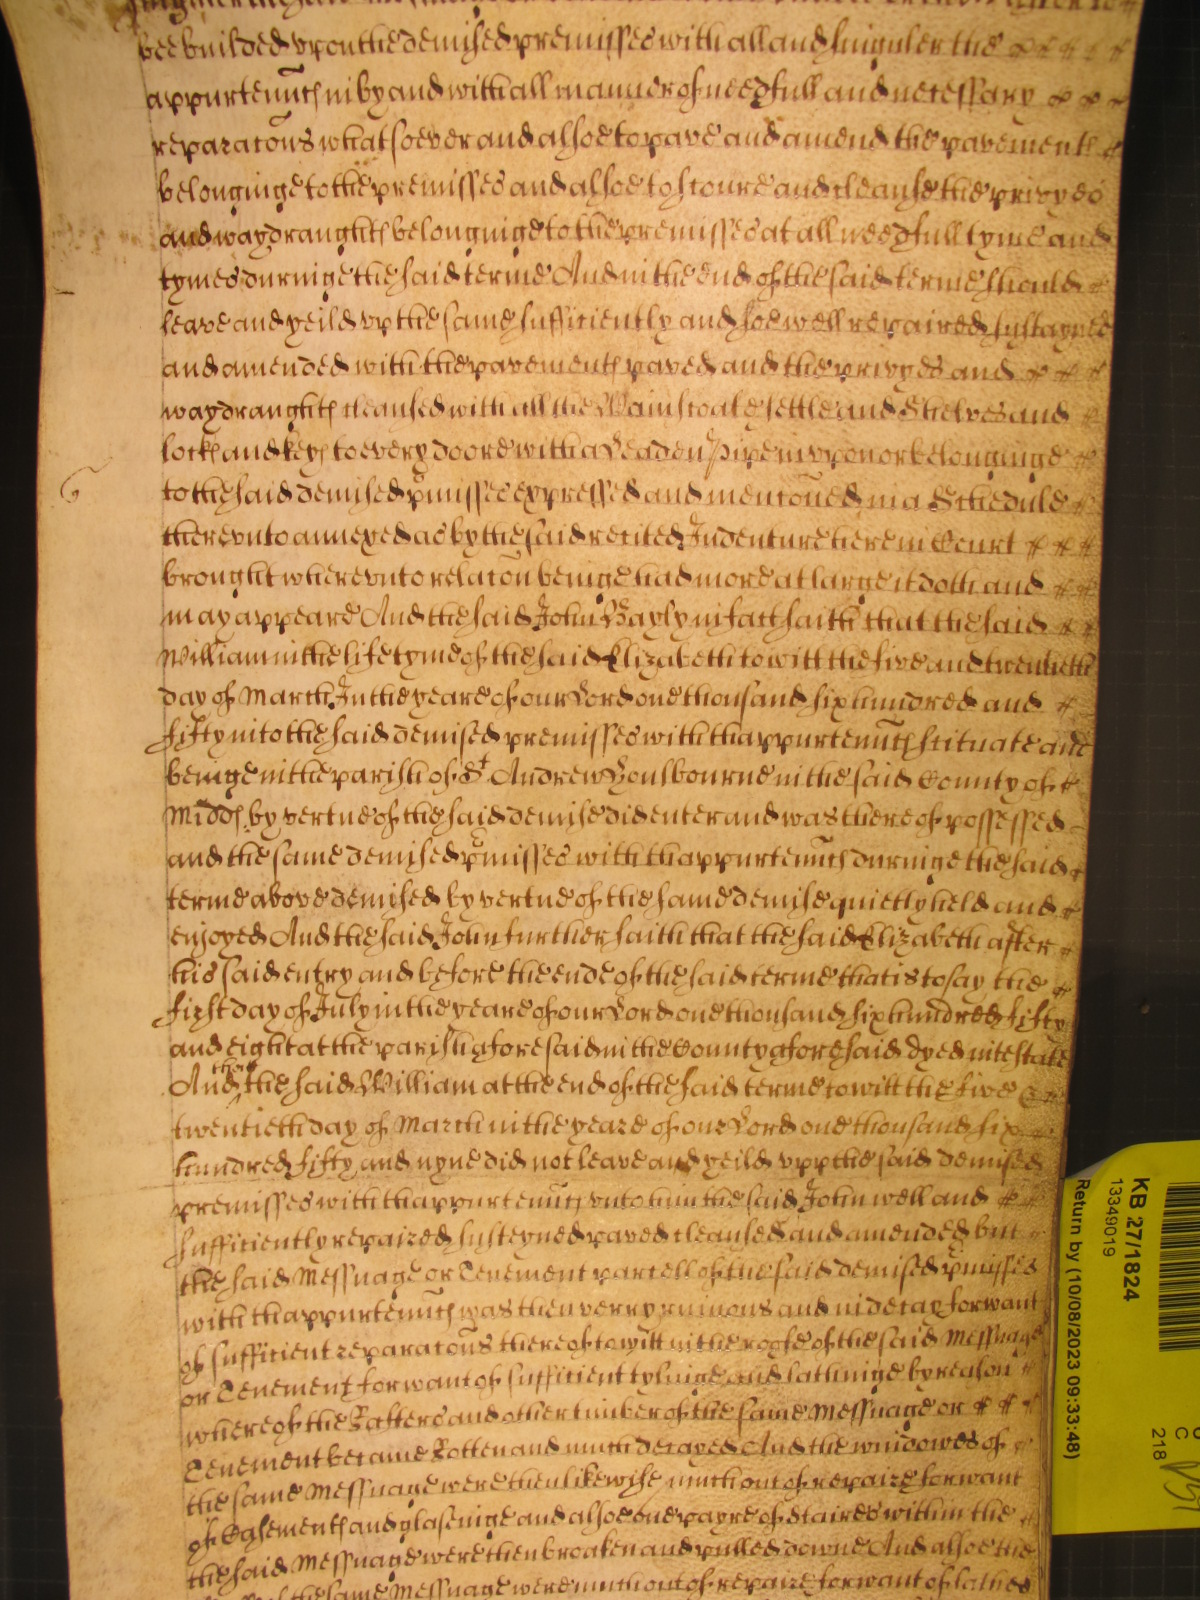 bee builded upon the demised premisses with all and singuler the
appurtenn͠cs in by and with all manner of needfull and necessary
reparac͠ons whatsoever and alsoe to pave and amend the pavements
belonginge to the premisses and alsoe to scoure and cleanse the privyes
and waydraughts belonginge to the premisses at all needfull tyme and
tymes duringe the said terme And in the end of the said terme should
leave and yeild vp the same sufficiently and soe well repaired sustayned
and amended with the pavements paved and the privyes and
waydraughts cleansed with all the Wainscoate settle and Shelves and
locks and keys to every doore with a Leaden Pipe in vpon or belonginge
to the said demised p͠misses expressed and menc͠oned in a Schedule
therevnto annexed as by the said recited Indenture here in Court
brought wherevnto relac͠on beinge had more at large it doth and
may appeare And the said John Bayly in fact saith that the said
William in the life tyme of the said Elizabeth to witt the five and twentieth
day of March In the yeare of our Lord one thousand six hundred and
fifty into the said demised premisses with thappurtenn͠cs scituate and
beinge in the parish of St Andrew in the said County of
Midd͠s by vertue of the said demise did enter and was thereof possessed
and the same demised p͠misses with thappurtenn͠cs duringe the said
terme above demised by vertue of the same demise quietly held and
enjoyed And the said John further saith that the said Elizabeth after
his said entry and before the ende of the said terme that is to say the
first day of July in the yeare of our Lord one thousand six hundred fifty
and eight at the parish aforesaid in the County aforesaid dyed intestate
And the said William at the end of the said terme to witt the five &
twentieth day of March in the yeare of our Lord one thousand six
hundred fifty and nyne did not leave and yeild vpp the said demised
premisses with thappurtenn͠cs vnto him the said John well and
sufficiently repaired susteyned paved cleansed and amended but
the said Messuage or Tenement parcell of the said demised p͠misses
with thappurtenn͠cs was then verry ruinous and in decay for want
of sufficient reparac͠ons thereof to witt in the roofe of the said Messuage
or Tenement for want of sufficient tylinge and lathinge by reason
whereof the Rafters and other timber of the same Messuage or
Tenement became Rotten and much decayed And the windowes of
the same Messuage were then likewise much out of repaire for want
of Casements and glaseinge and alsoe one payre of staires within the
the said Messuage were then broaken and pulled downe And alsoe the
of the same Messuage were much out of repaire for want of lathes
KB 27/1824
13349019
Return by (10/08/2023 09:33:48)
C
218